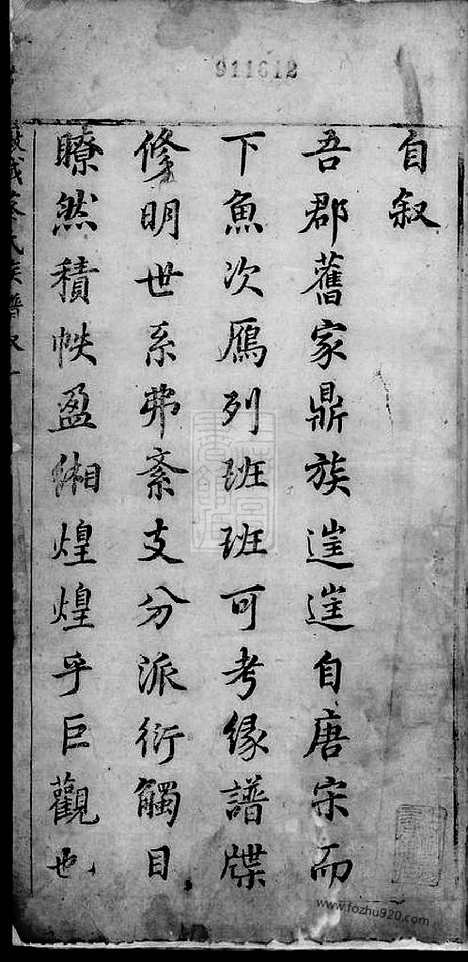 911612
自叙
吾郡舊家鼎族逞逞自唐宋而
下魚次鴈列班班可考緣譜牒
修明世系弗紊支分派衍觸目
瞭然積帙盈緗煌煌乎巨觀也
氏族譜
www.fozhu920.com